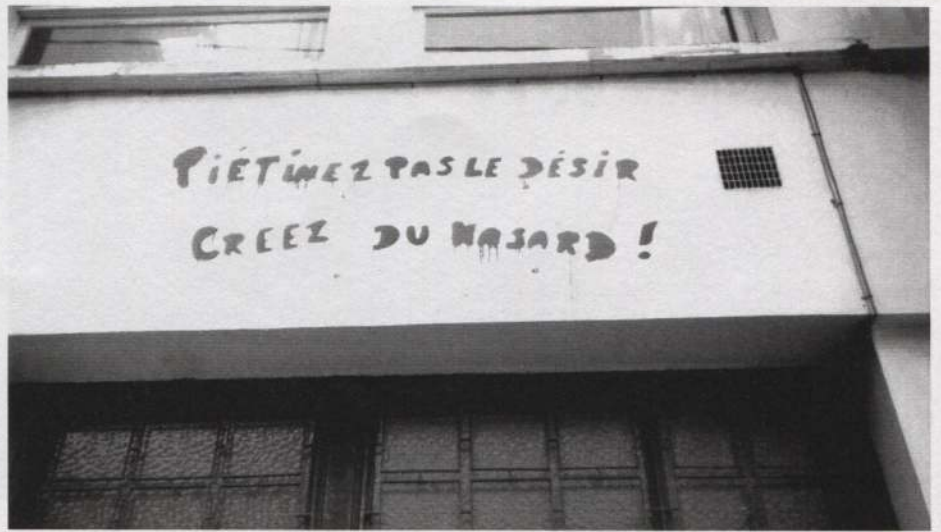 PiÉTiNEZ PAS LE DÉSiR
CREEZ DU HASARD !